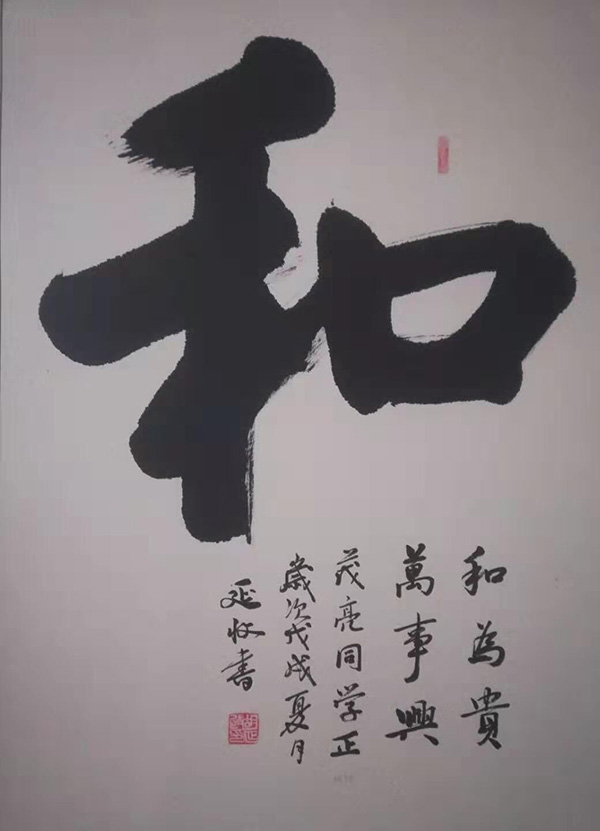 和
和為貴
萬事興
茂亮同学正
歲次戊戌夏月
延收書